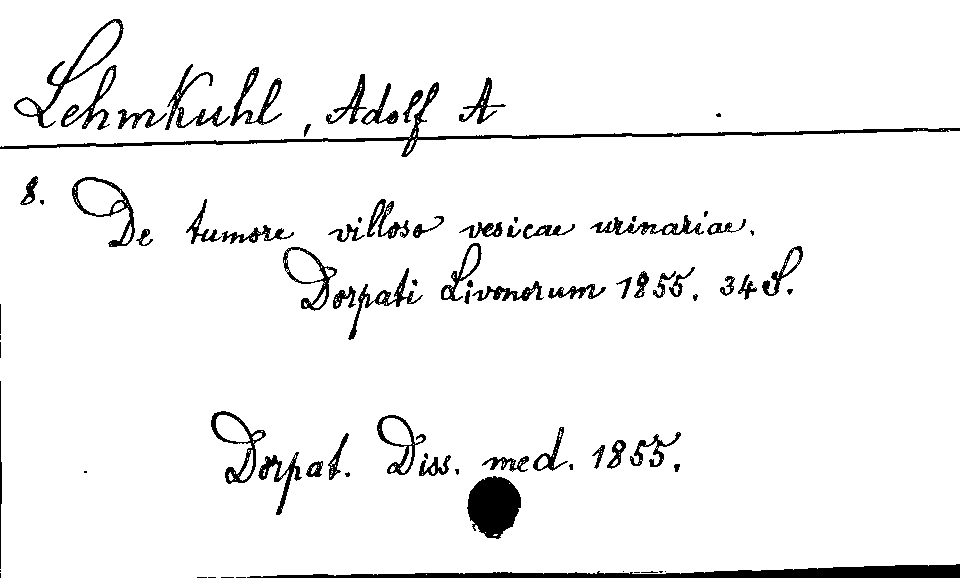 Lehmkuhl, Adolf A
8. De tumore villoso vesicae urinariae.
Dorpati Livonorum 1855. 34 S.
Dorpat. Diss. med. 1855.